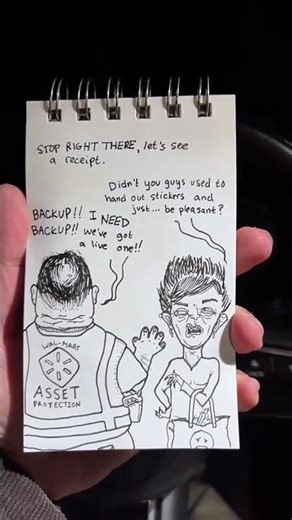 STOP RIGHT THERE, let's see
a receipt.
Didn't you guys used to
hand out stickers and
just... be pleasant?
BACKUP!! I NEED
BACKUP!! we've got
a live one!!
WAL-MART
ASSET
PROTECTION